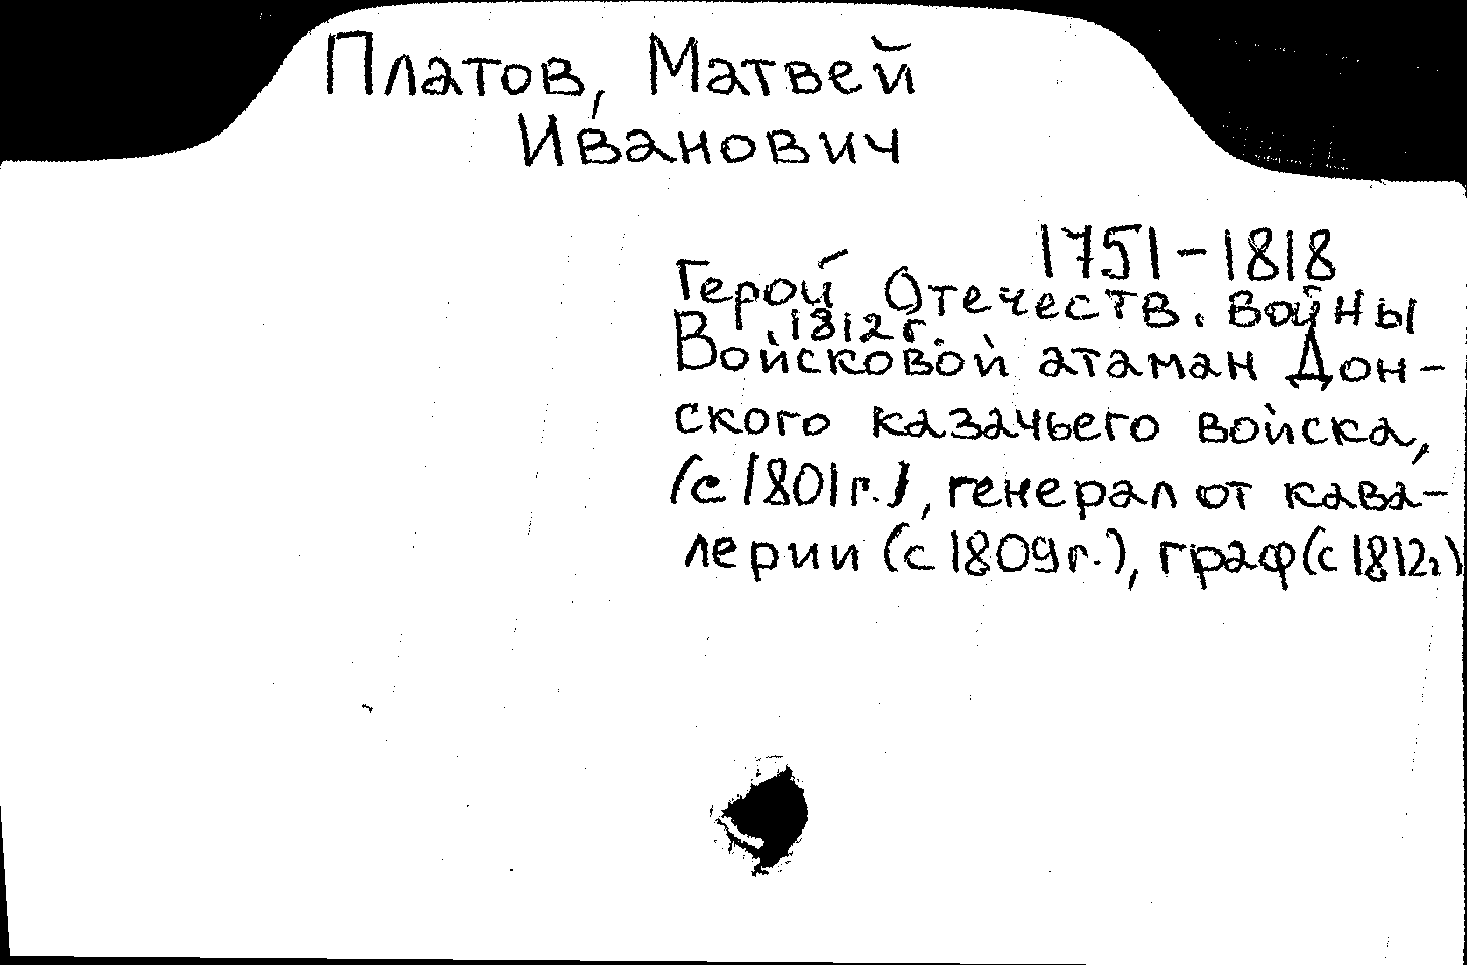 Платов, Матвей
Иванович
1751-1818
Герой Отечеств. войны
1812 г.
Войсковой атаман Дон-
ского казачьего войска,
(с 1801 г.), генерал от кава-
лерии (с 1809 г.), граф (с 1812 г)